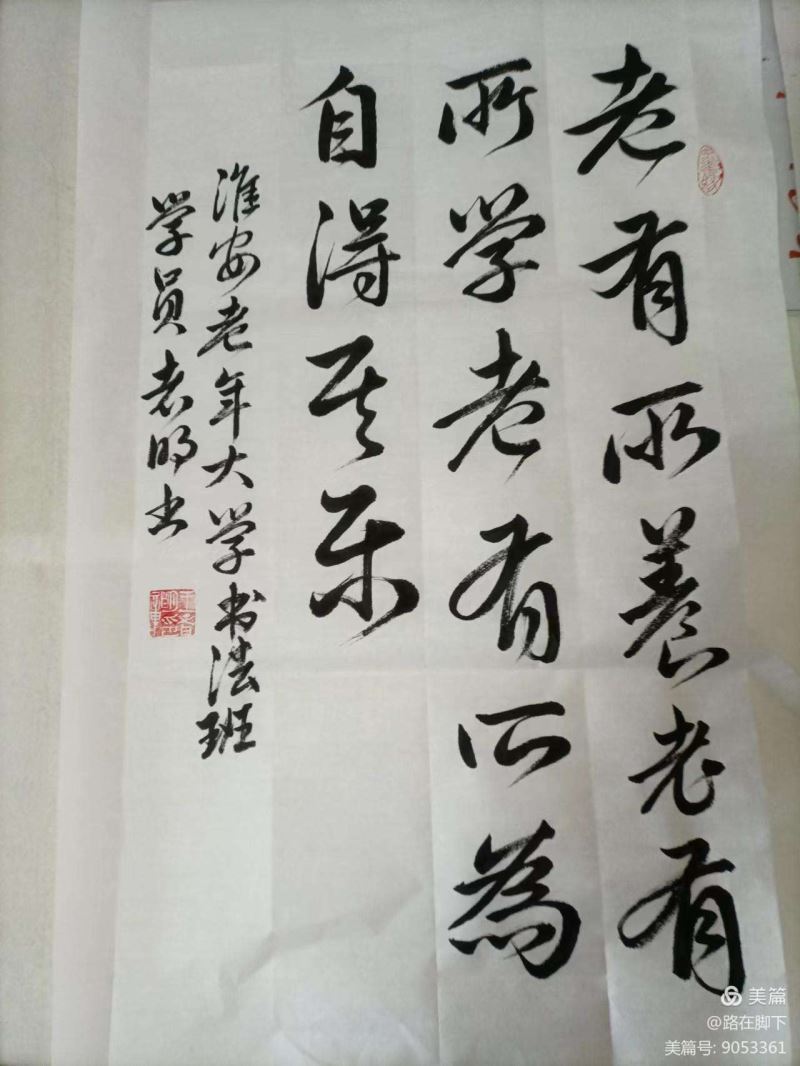 老有所養老有
所学老有所為
自得其乐
淮安老年大学书法班
学员袁明书
美篇
@路在脚下
美篇号: 9053361